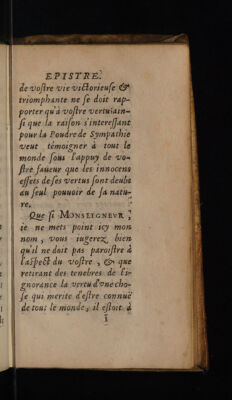 EPISTRE.
de vostre vie victorieuse &
triomphante ne se doit rap-
porter qu'à vostre vertu: ain-
si que la raison s'interessant
pour la Poudre de Sympathie
veut témoigner à tout le
monde sous l'appuy de vo-
stre faueur que les innocens
effets de ses vertus sont deubs
au seul pouuoir de sa natu-
re.
Que si MONSEIGNEVR,
ie ne mets point icy mon
nom, vous iugerez bien
qu'il ne doit pas paroistre à
l'aspect du vostre, & que
retirant des tenebres de l'i-
gnorance la vertu d'vne cho-
se qui merite d'estre connuë
de tout le monde, il estoit à
ĩ